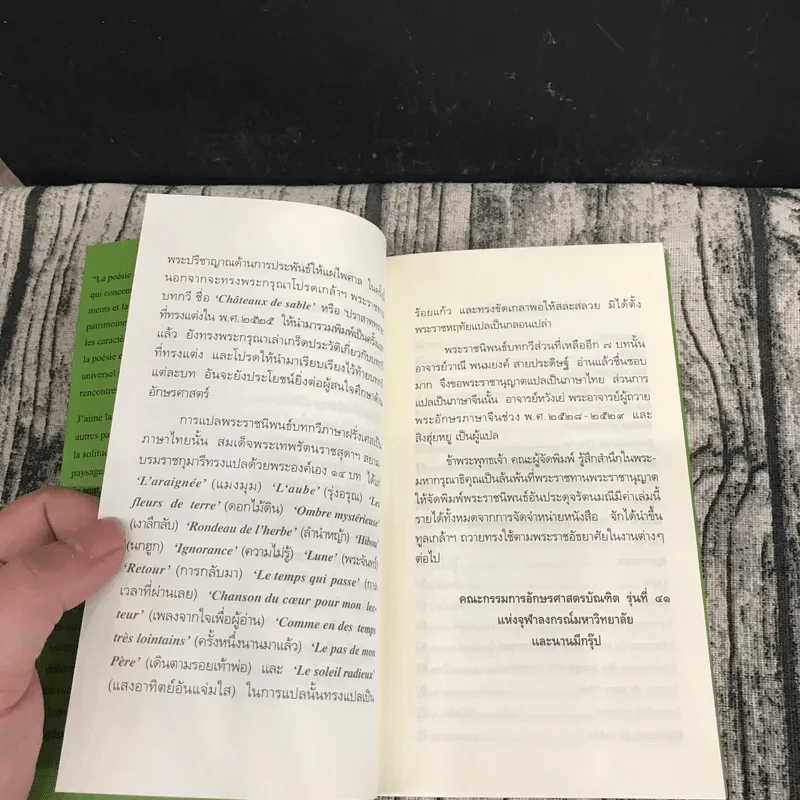 "La poésie
qui concent
ments et la
patrimoine
les caractè
la poésie
universel
rencontre
J'aime la
autres pa
la solitud
paysage
พระปรีชาญาณด้านการประพันธ์ให้แผ่ไพศาล ในครั้งนี้
นอกจากจะทรงพระกรุณาโปรดเกล้าฯ พระราชทาน
บทกวี ชื่อ 'Châteaux de sable' หรือ 'ปราสาททราย'
ที่ทรงแต่งใน พ.ศ.๒๕๒๕ ให้นำมารวมพิมพ์เป็นครั้งแรก
แล้ว ยังทรงพระกรุณาเล่าเกร็ดประวัติเกี่ยวกับบทกวี
ที่ทรงแต่ง และโปรดให้นำมาเรียบเรียงไว้ท้ายบทกวี
แต่ละบท อันจะยังประโยชน์ยิ่งต่อผู้สนใจศึกษาด้าน
อักษรศาสตร์
การแปลพระราชนิพนธ์บทกวีภาษาฝรั่งเศสเป็น
ภาษาไทยนั้น สมเด็จพระเทพรัตนราชสุดาฯ สยาม
บรมราชกุมารีทรงแปลด้วยพระองค์เอง ๑๔ บท ได้แก่
'L'araignée' (แมงมุม) 'L'aube' (รุ่งอรุณ) 'Les
fleurs de terre' (ดอกไม้ดิน) 'Ombre mystérieuse'
(เงาลึกลับ) 'Rondeau de l'herbe' (ลำนำหญ้า) 'Hibou'
(นกฮูก) 'Ignorance' (ความไม่รู้) 'Lune' (พระจันทร์)
'Retour' (การกลับมา) 'Le temps qui passe' (กาล
เวลาที่ผ่านเลย) 'Chanson du cœur pour mon lec-
teur' (เพลงจากใจเพื่อผู้อ่าน) 'Comme en des temps
très lointains' (ครั้งหนึ่งนานมาแล้ว) 'Le pas de mon
Père' (เดินตามรอยเท้าพ่อ) และ 'Le soleil radieux'
(แสงอาทิตย์อันแจ่มใส) ในการแปลนั้นทรงแปลเป็น
ร้อยแก้ว และทรงขัดเกลาพอให้สละสลวย มิได้ตั้ง
พระราชหฤทัยแปลเป็นกลอนเปล่า
พระราชนิพนธ์บทกวีส่วนที่เหลืออีก ๗ บทนั้น
อาจารย์วาณี พนมยงค์ สายประดิษฐ์ อ่านแล้วชื่นชอบ
มาก จึงขอพระราชานุญาตแปลเป็นภาษาไทย ส่วนการ
แปลเป็นภาษาจีนนั้น อาจารย์หวังเย่ พระอาจารย์ผู้ถวาย
พระอักษรภาษาจีนช่วง พ.ศ.๒๕๒๘-๒๕๒๙ และ
สิงฮุ่ยหยู เป็นผู้แปล
ข้าพระพุทธเจ้า คณะผู้จัดพิมพ์ รู้สึกสำนึกในพระ-
มหากรุณาธิคุณเป็นล้นพ้นที่พระราชทานพระราชานุญาต
ให้จัดพิมพ์พระราชนิพนธ์อันประดุจรัตนมณีมีค่าเล่มนี้
รายได้ทั้งหมดจากการจัดจำหน่ายหนังสือ จักได้นำขึ้น
ทูลเกล้าฯ ถวายทรงใช้ตามพระราชอัธยาศัยในงานต่างๆ
ต่อไป
คณะกรรมการอักษรศาสตรบัณฑิต รุ่นที่ ๔๑
แห่งจุฬาลงกรณ์มหาวิทยาลัย
และนานมีกรุ๊ป